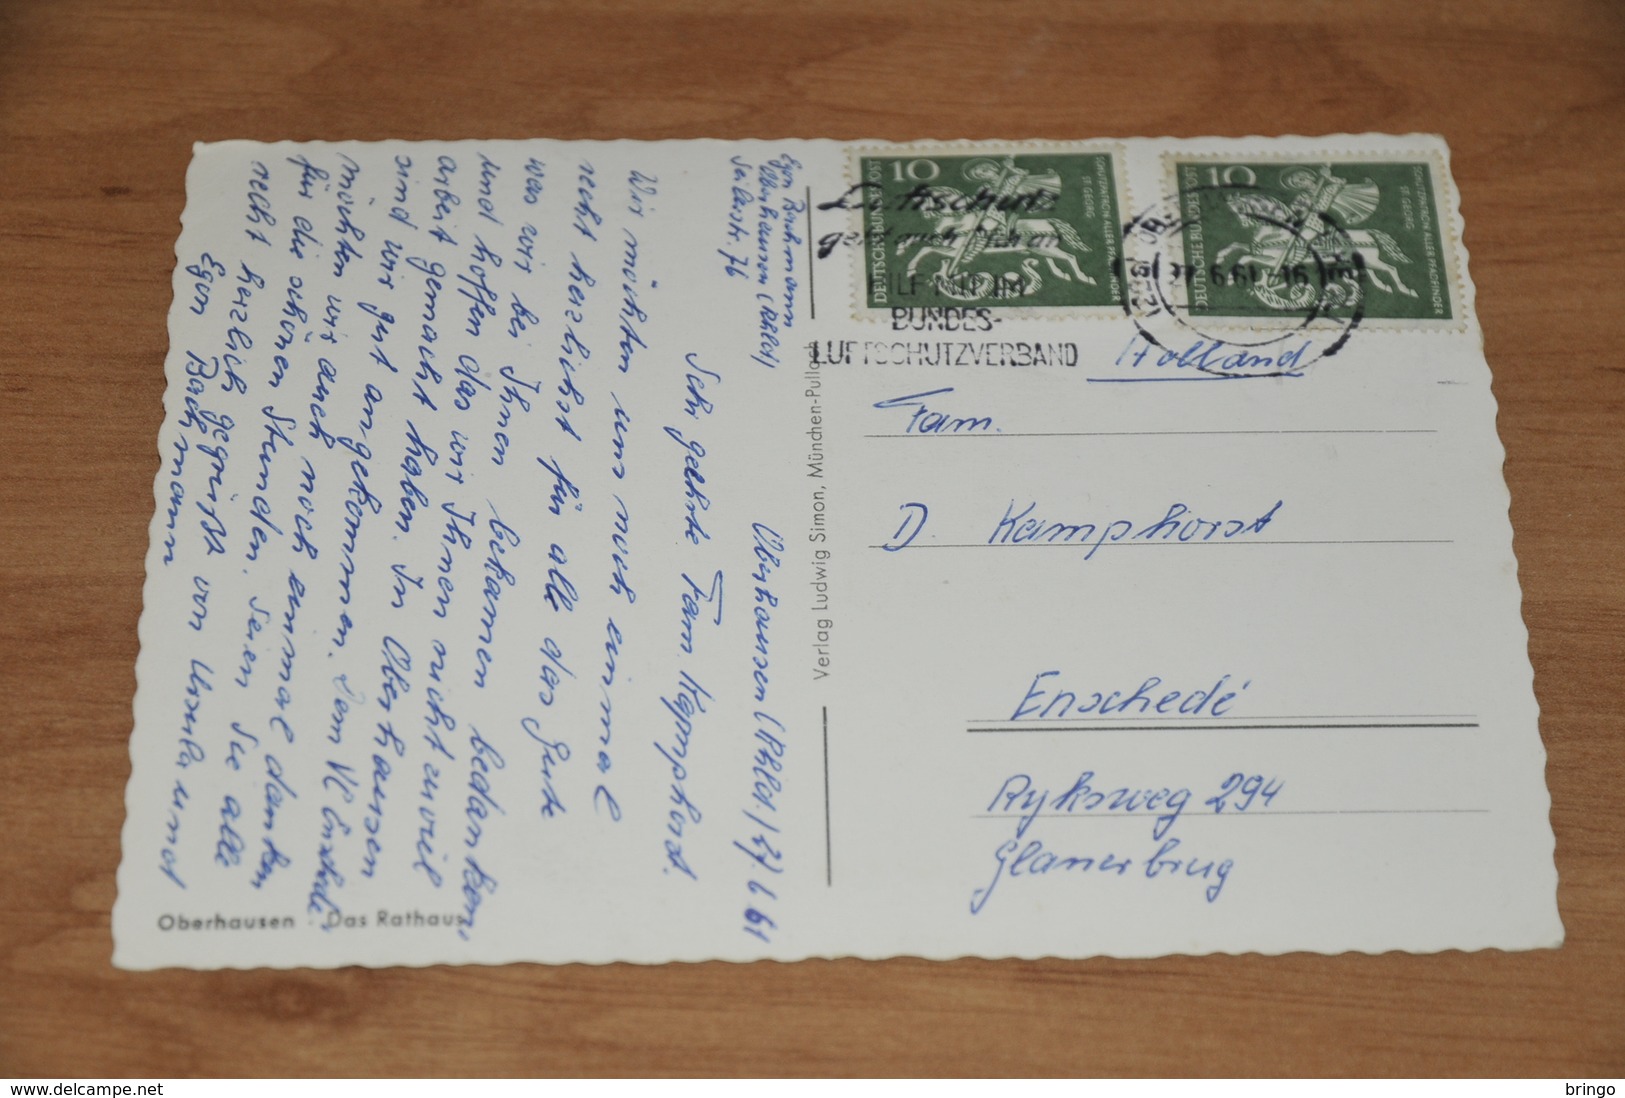 Egon Bachmann
Oberhausen (Rhld)
Sedanstr. 76
Oberhausen (Rhld.) 27.6.61
Sehr geehrte Fam. Kamphorst.
Wir möchten uns noch einmal
recht herzlichst für alle das Gute
was wir bei Ihnen bekamen bedanken,
und hoffen das wir Ihnen nicht zuviel
arbeit gemacht haben. In Oberhausen
sind wir gut angekommen. Dem VC Enschede
möchten wir auch noch einmal danken
für die schönen Stunden. Seien Sie alle
recht herzlich gegrüßt von Ursula und
Egon Bachmann
Oberhausen Das Rathaus
Verlag Ludwig Simon, München-Pullach
10
DEUTSCHE BUNDESPOST
SCHUTZPATRON ALLER PFADFINDER
ST. GEORG
10
DEUTSCHE BUNDESPOST
SCHUTZPATRON ALLER PFADFINDER
ST. GEORG
Luftschutz
geht auch Dich an
HILF MIT IM
BUNDES-
LUFTSCHUTZVERBAND
27.6.61-16
Holland
Fam.
D. Kamphorst
Enschedé
Ryksweg 294
Glanerbrug
delcampe.net
bringo